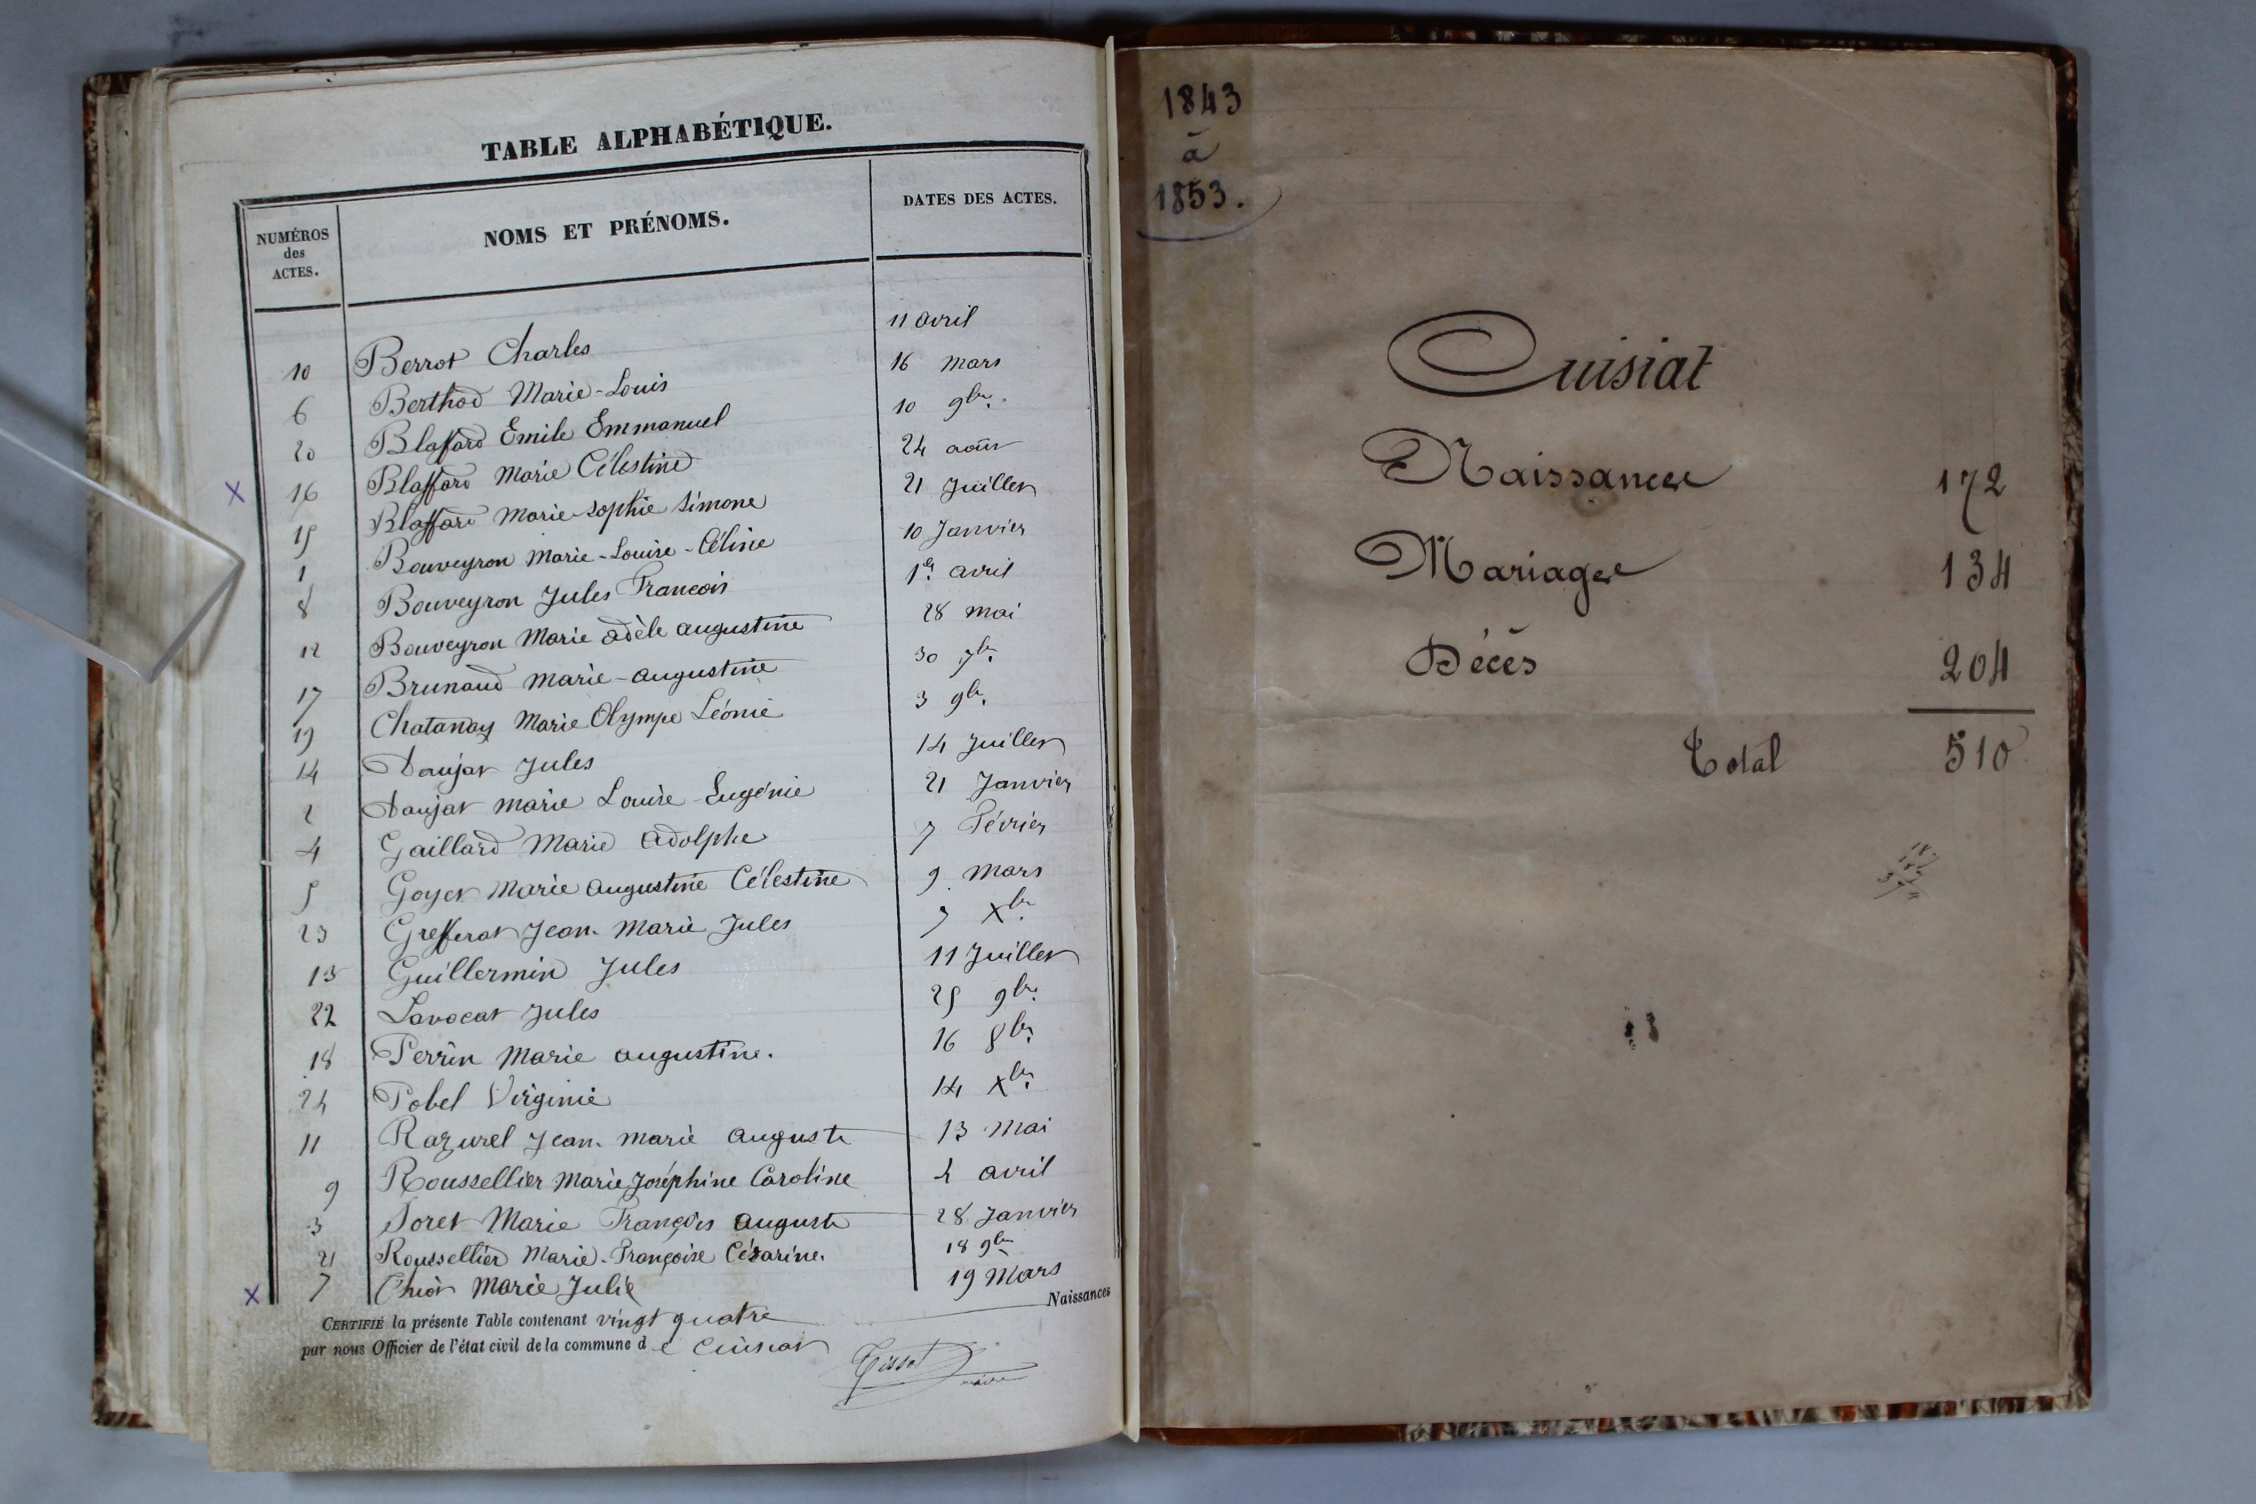 TABLE ALPHABÉTIQUE.
NUMÉROS des ACTES. NOMS ET PRÉNOMS. DATES DES ACTES.
10 Berrot Charles 11 avril
6 Berthod Marie-Louis 16 mars
20 Blaffard Emile Emmanuel 10 9bre.
16 Blaffard Marie Célestine 24 août
15 Blaffard Marie Sophie Simone 21 Juillet
1 Bouveyron Marie-Louise-Céline 10 Janvier
8 Bouveyron Jules François 1er avril
12 Bouveyron Marie adèle augustine 28 mai
17 Brunaud Marie-augustine 30 7bre
19 Chatanay Marie Olympe Léonie 3 9bre.
14 Daujat Jules 14 Juillet
2 Daujat Marie Louise Eugénie 21 Janvier
4 Gaillard Marie adolphe 7 Février
5 Goyet Marie augustine Célestine 9 Mars
23 Grefferat Jean-Marie Jules 7 Xbre
13 Guillermin Jules 11 Juillet
22 Lavocat Jules 25 9bre
18 Perrin Marie augustine. 16 8bre
24 Pobel Virginie 14 Xbre
11 Razurel Jean-marie auguste 13 Mai
9 Roussellier Marie Joséphine Caroline 4 avril
3 Soret Marie François auguste 28 Janvier
21 Roussellier Marie-Françoise Césarine. 18 9bre
X 7 Marie Julie 19 Mars
CERTIFIÉ la présente Table contenant vingt quatre Naissances
par nous Officier de l'état civil de la commune de Cuisiat
Tissot
maire
1843
à
1853.
Cuisiat
Naissances 172
Mariages 134
Décès 204
Total 510